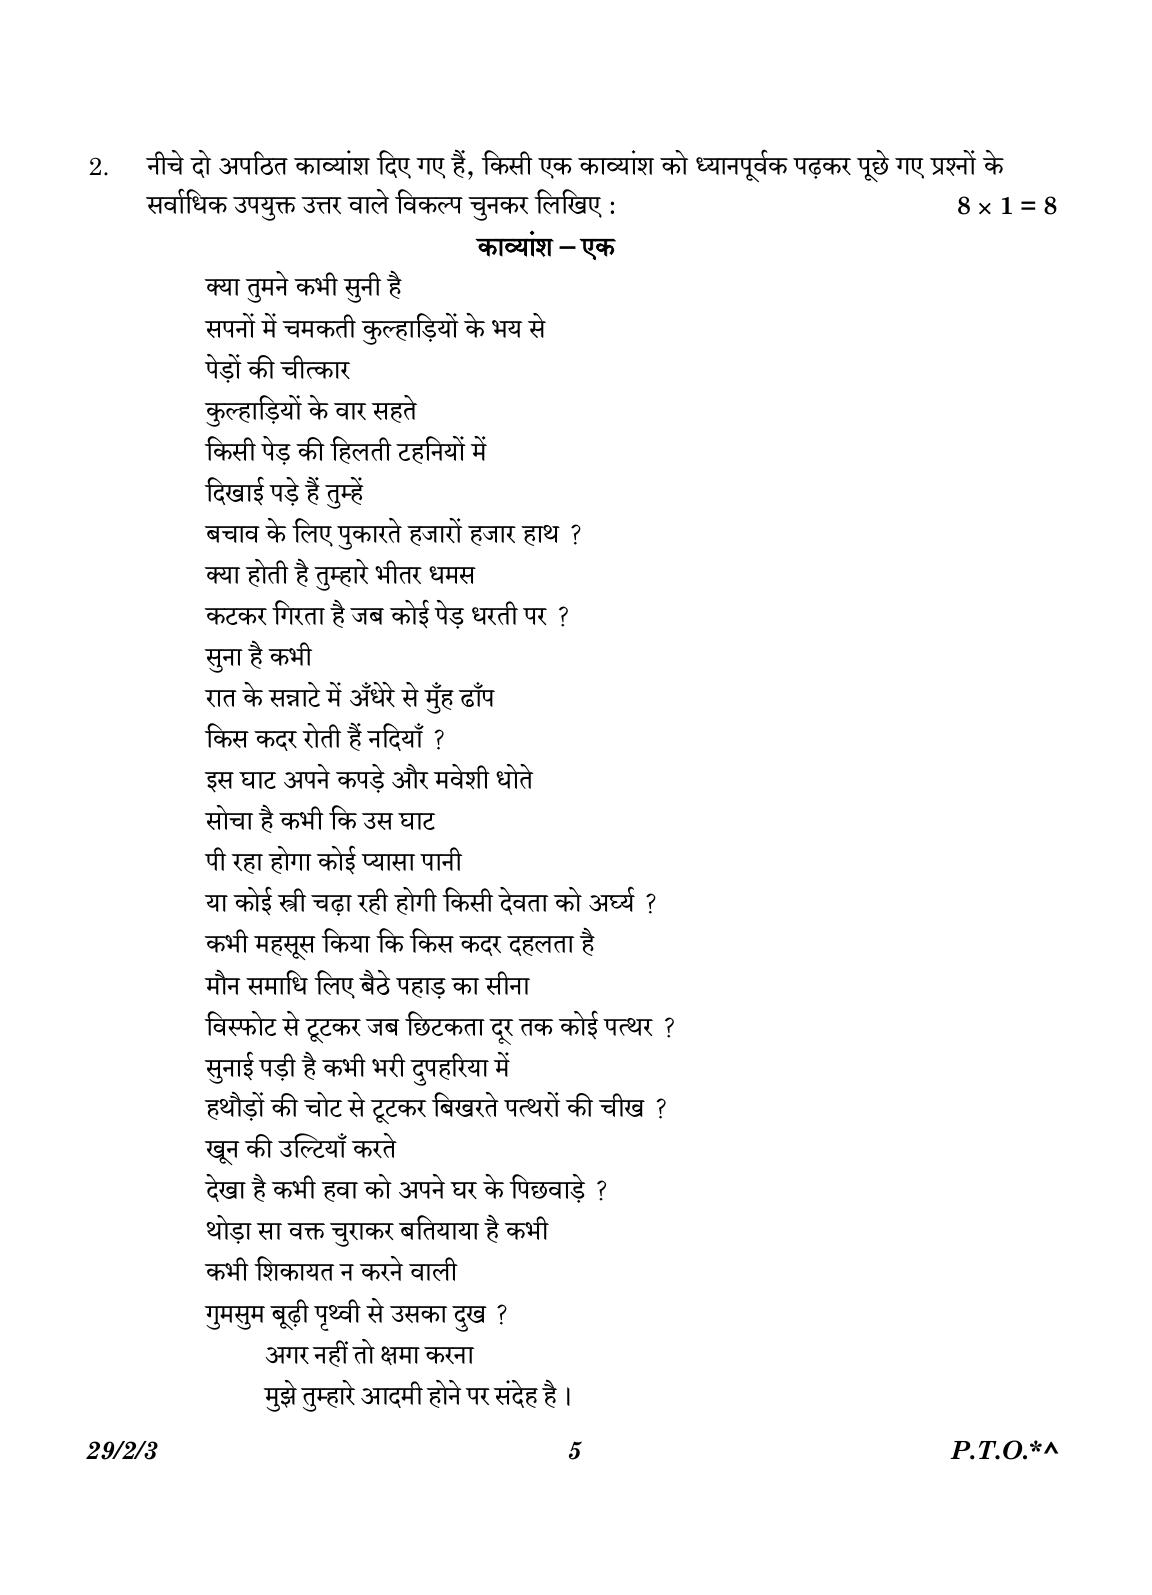 2. नीचे दो अपठित काव्यांश दिए गए हैं, किसी एक काव्यांश को ध्यानपूर्वक पढ़कर पूछे गए प्रश्नों के
सर्वाधिक उपयुक्त उत्तर वाले विकल्प चुनकर लिखिए : 8 × 1 = 8
काव्यांश – एक
क्या तुमने कभी सुनी है
सपनों में चमकती कुल्हाड़ियों के भय से
पेड़ों की चीत्कार
कुल्हाड़ियों के वार सहते
किसी पेड़ की हिलती टहनियों में
दिखाई पड़े हैं तुम्हें
बचाव के लिए पुकारते हजारों हजार हाथ ?
क्या होती है तुम्हारे भीतर धमस
कटकर गिरता है जब कोई पेड़ धरती पर ?
सुना है कभी
रात के सन्नाटे में अँधेरे से मुँह ढाँप
किस कदर रोती हैं नदियाँ ?
इस घाट अपने कपड़े और मवेशी धोते
सोचा है कभी कि उस घाट
पी रहा होगा कोई प्यासा पानी
या कोई स्त्री चढ़ा रही होगी किसी देवता को अर्घ्य ?
कभी महसूस किया कि किस कदर दहलता है
मौन समाधि लिए बैठे पहाड़ का सीना
विस्फोट से टूटकर जब छिटकता दूर तक कोई पत्थर ?
सुनाई पड़ी है कभी भरी दुपहरिया में
हथौड़ों की चोट से टूटकर बिखरते पत्थरों की चीख ?
खून की उल्टियाँ करते
देखा है कभी हवा को अपने घर के पिछवाड़े ?
थोड़ा सा वक्त चुराकर बतियाया है कभी
कभी शिकायत न करने वाली
गुमसुम बूढ़ी पृथ्वी से उसका दुख ?
अगर नहीं तो क्षमा करना
मुझे तुम्हारे आदमी होने पर संदेह है ।
29/2/3 5 P.T.O.*^